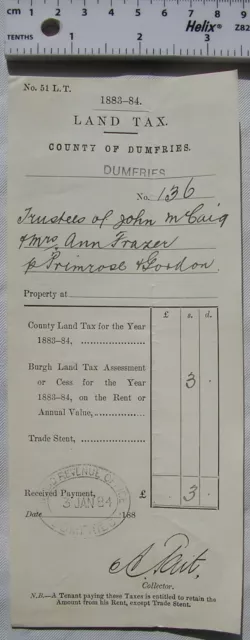 cm 1 2 3 4 5 6 7 8
TENTHS 1 2 3
Helix®
No. 51 L.T.
1883-84.
LAND TAX.
COUNTY OF DUMFRIES.
DUMFRIES
No. 136
Trustees of John McCaig
& Mrs Ann Frazer
p Primrose & Gordon.
Property at
£ s. d.
County Land Tax for the Year
1883-84,
Burgh Land Tax Assessment
or Cess for the Year
1883-84, on the Rent or
Annual Value, 3 .
Trade Stent,
Received Payment, £ . 3 .
REVENUE OFFICE
3 JAN 84
Date 188
A. Tait,
Collector.
N.B.—A Tenant paying these Taxes is entitled to retain the
Amount from his Rent, except Trade Stent.